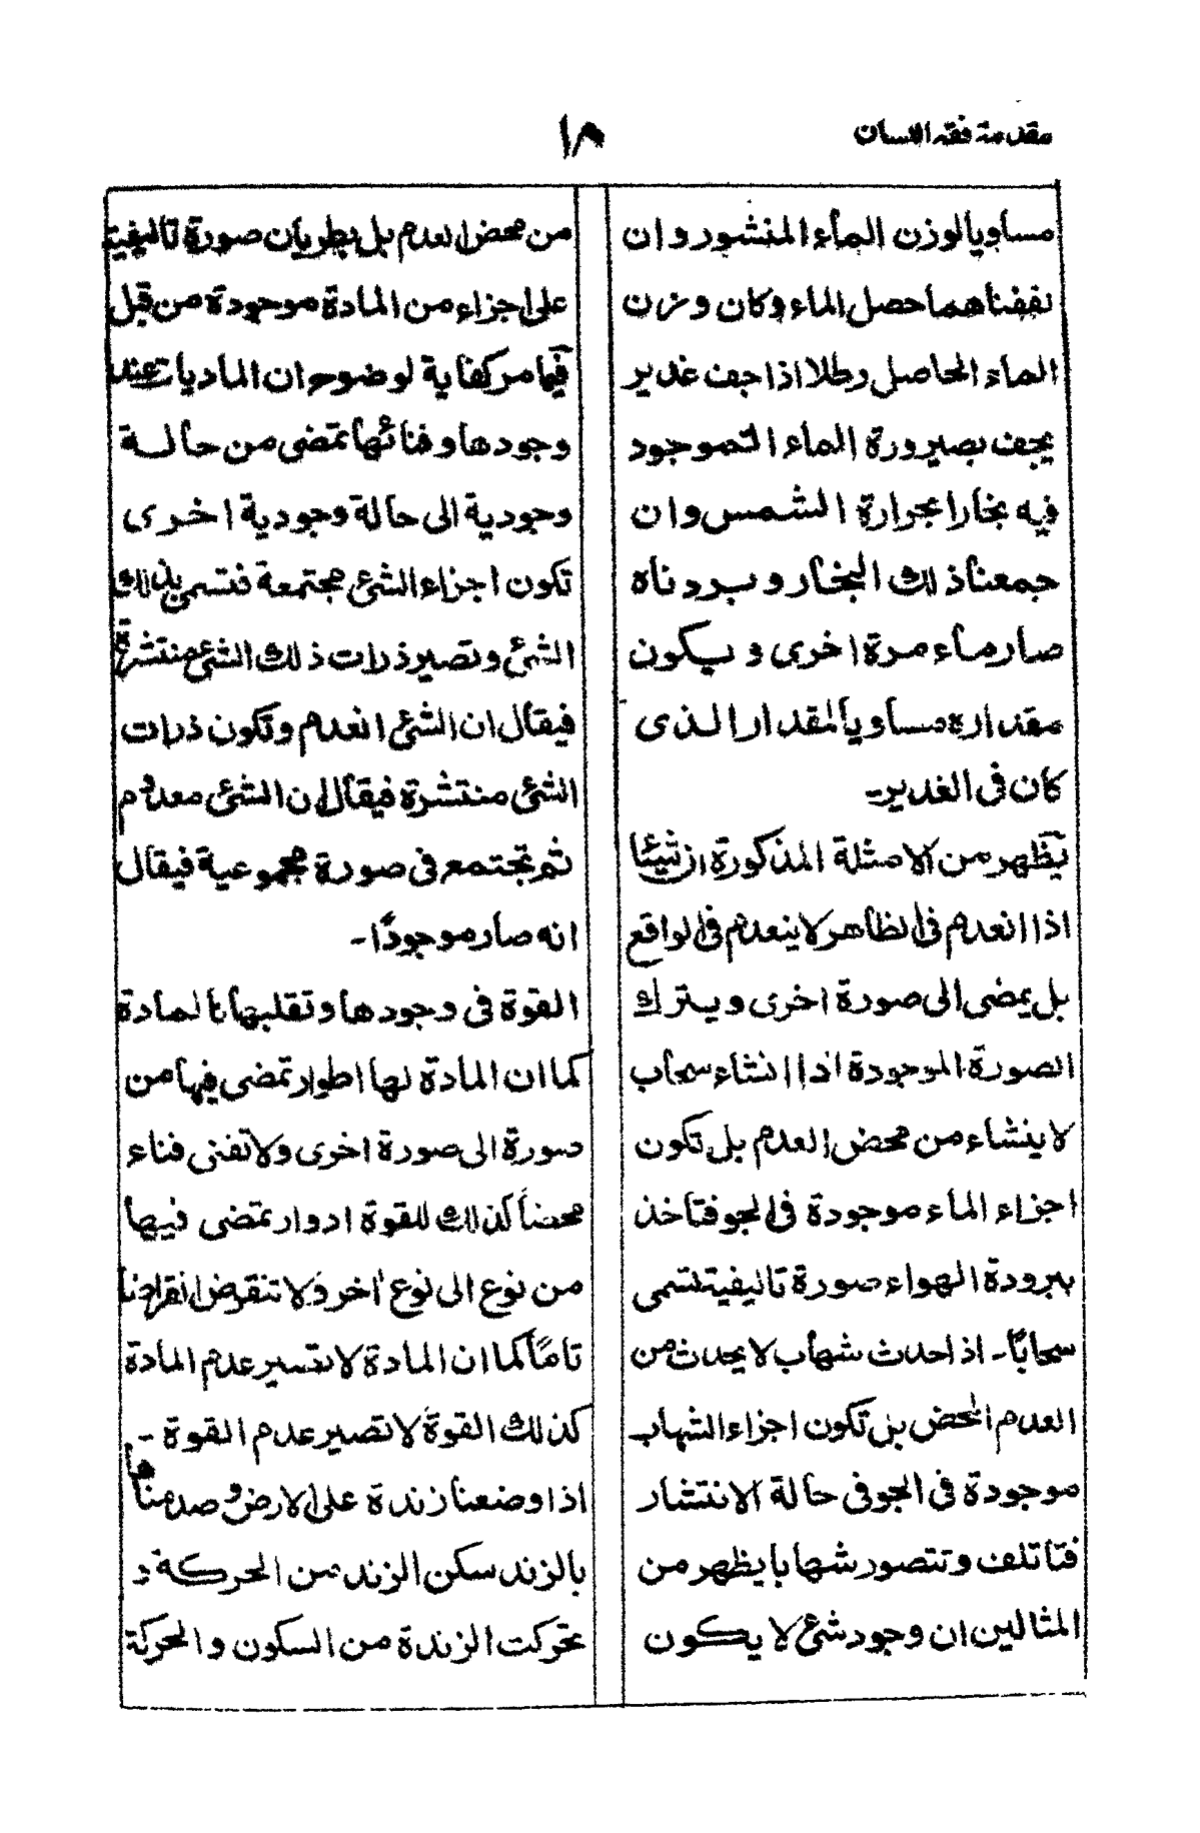 مقدمة فقه اللسان
١٨
مساويا لوزن الماء المنشور وان
نففناهما حصل الماء وكان وزن
الماء الحاصل رطلا اذا جف غدير
يجف بصيرورة الماء الموجود
فيه بخارا بحرارة الشمس وان
جمعنا ذلك البخار وبردناه
صار ماء مرة اخرى و يكون
مقداره مساويا لمقدار الذى
كان فى الغدير۔
يظهر من الامثلة المذكورة ان شيئا
اذا انعدم فى الظاهر لا ينعدم فى الواقع
بل يمضى الى صورة اخرى ويترك
الصورة الموجودة اذا انشاء سحاب
لا ينشاء من محض العدم بل تكون
اجزاء الماء موجودة فى الجو فتاخذ
ببرودة الهواء صورة تاليفية تسمى
سحابًا۔ اذا حدث شهاب لا يحدث من
العدم المحض بل تكون اجزاء الشهاب
موجودة فى الجو فى حالة الانتشار
فتاتلف و تتصور شهابا يظهر من
المثالين ان وجود شئ لا يكون
من محض العدم بل بطريان صورة تاليفية
على اجزاء من المادة موجودة من قبل
فيما مر كفاية لوضوح ان الماديات عند
وجودها وفنائها تمضى من حالة
وجودية الى حالة وجودية اخرى
تكون اجزاء الشئ مجتمعة فتسمى بذلك
الشئ وتصير ذرات ذلك الشئ منتشرة
فيقال ان الشئ انعدم وتكون ذرات
الشئ منتشرة فيقال ان الشئ معدوم
ثم تجتمع فى صورة مجموعية فيقال
انه صار موجودًا۔
القوة فى وجودها وتقلبها بالمادة
كما ان المادة لها اطوار تمضى فيها من
صورة الى صورة اخرى ولا تفنى فناء
محضا كذلك للقوة ادوار تمضى فيها
من نوع الى نوع اخر ولا تنقرض انقراضا
تامًا كما ان المادة لا تصير عدم المادة
كذلك القوة لا تصير عدم القوة ۔
اذا وضعنا زندة على الارض و صدمناها
بالزند سكن الزند من الحركة و
تحركت الزندة من السكون والحركة